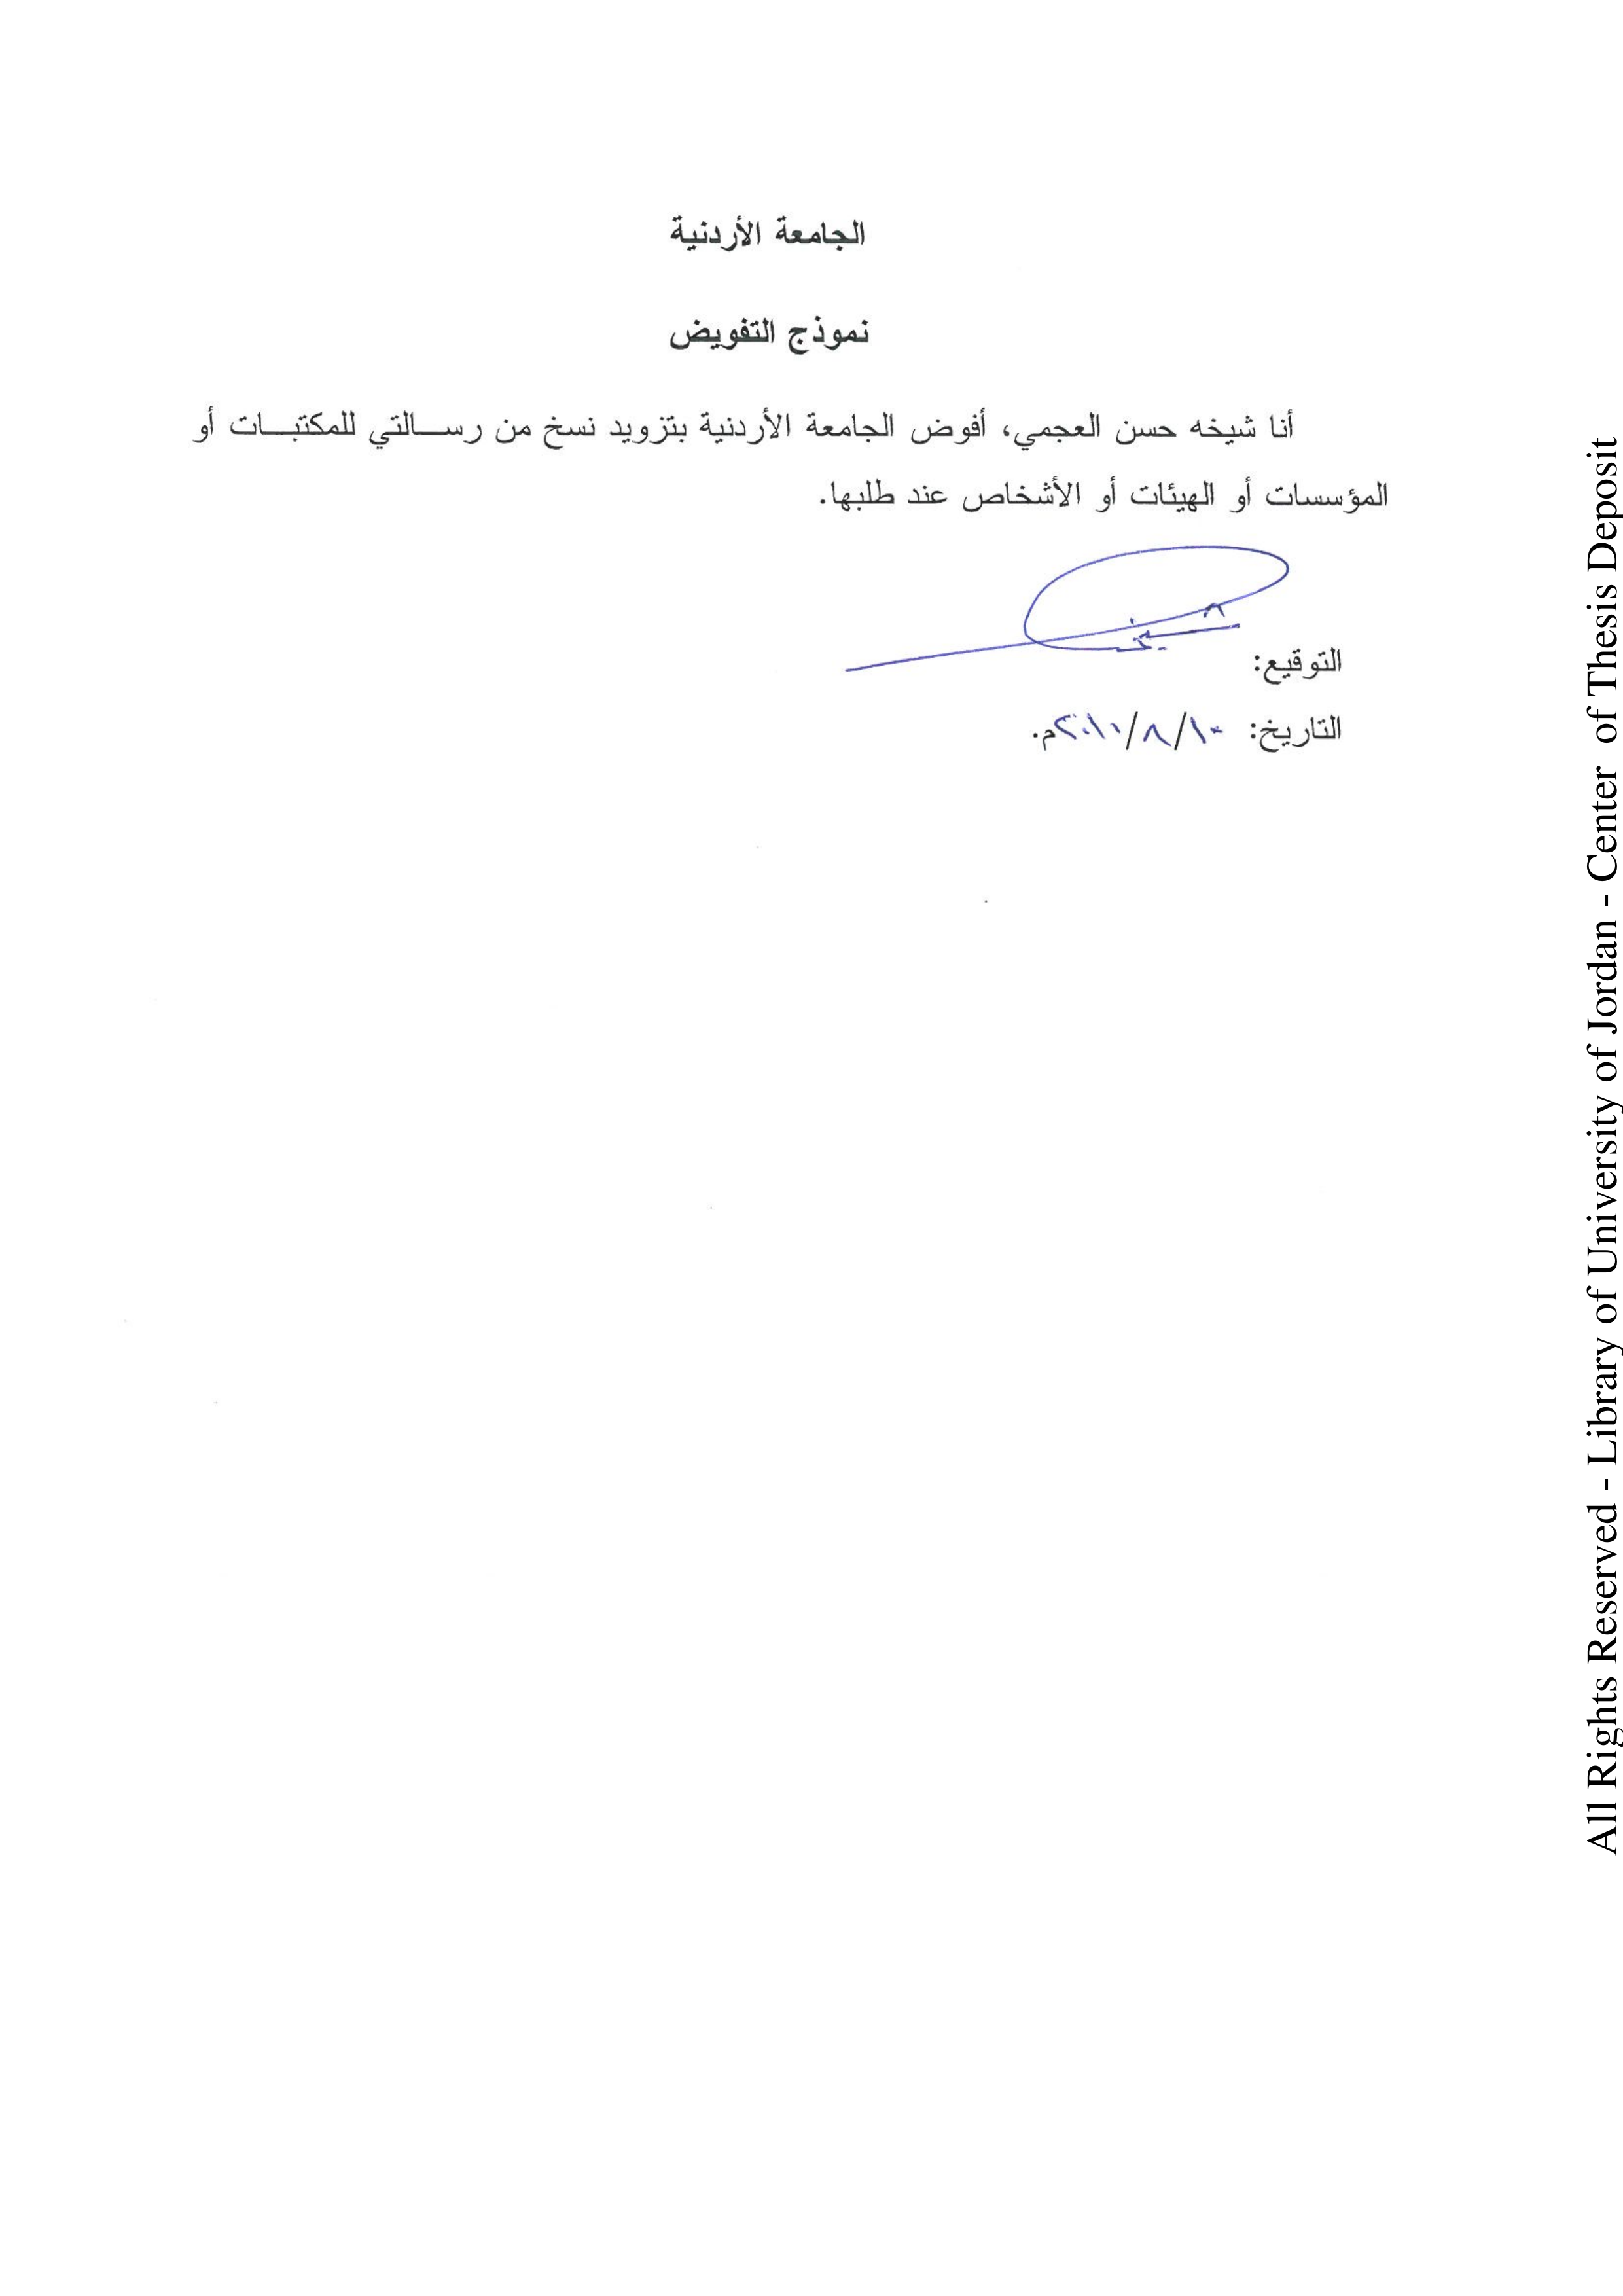 الجامعة الأردنية
نموذج التفويض
أنا شيخه حسن العجمي، أفوض الجامعة الأردنية بتزويد نسخ من رسالتي للمكتبات أو
المؤسسات أو الهيئات أو الأشخاص عند طلبها.
التوقيع:
التاريخ: ١٠/٨/٢٠١٠م.
All Rights Reserved - Library of University of Jordan - Center of Thesis Deposit